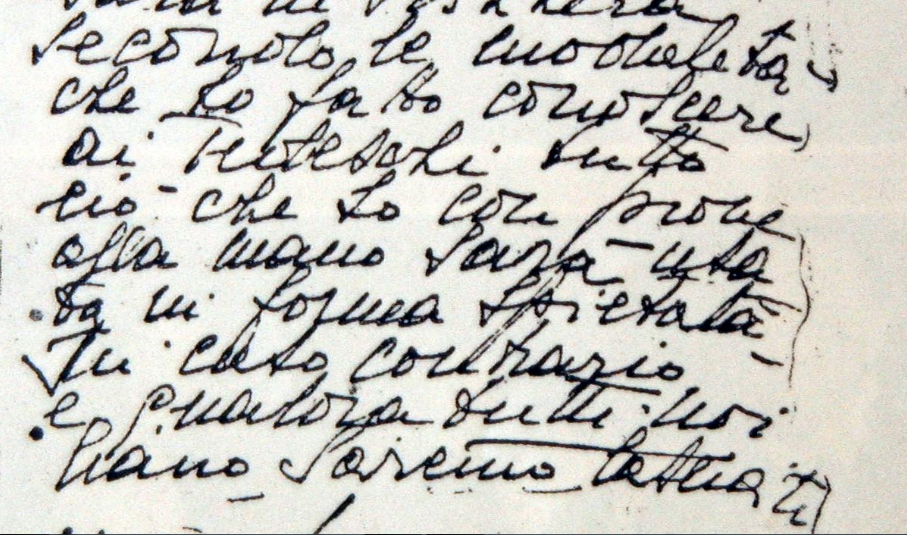 secondo le modalità
che ho fatto conoscere
ai Tedeschi tutto
ciò che ho con prove
alla mano sarà usa
ta in forma spietata
In caso contrario
e qualora tutti noi
saremo lasciati